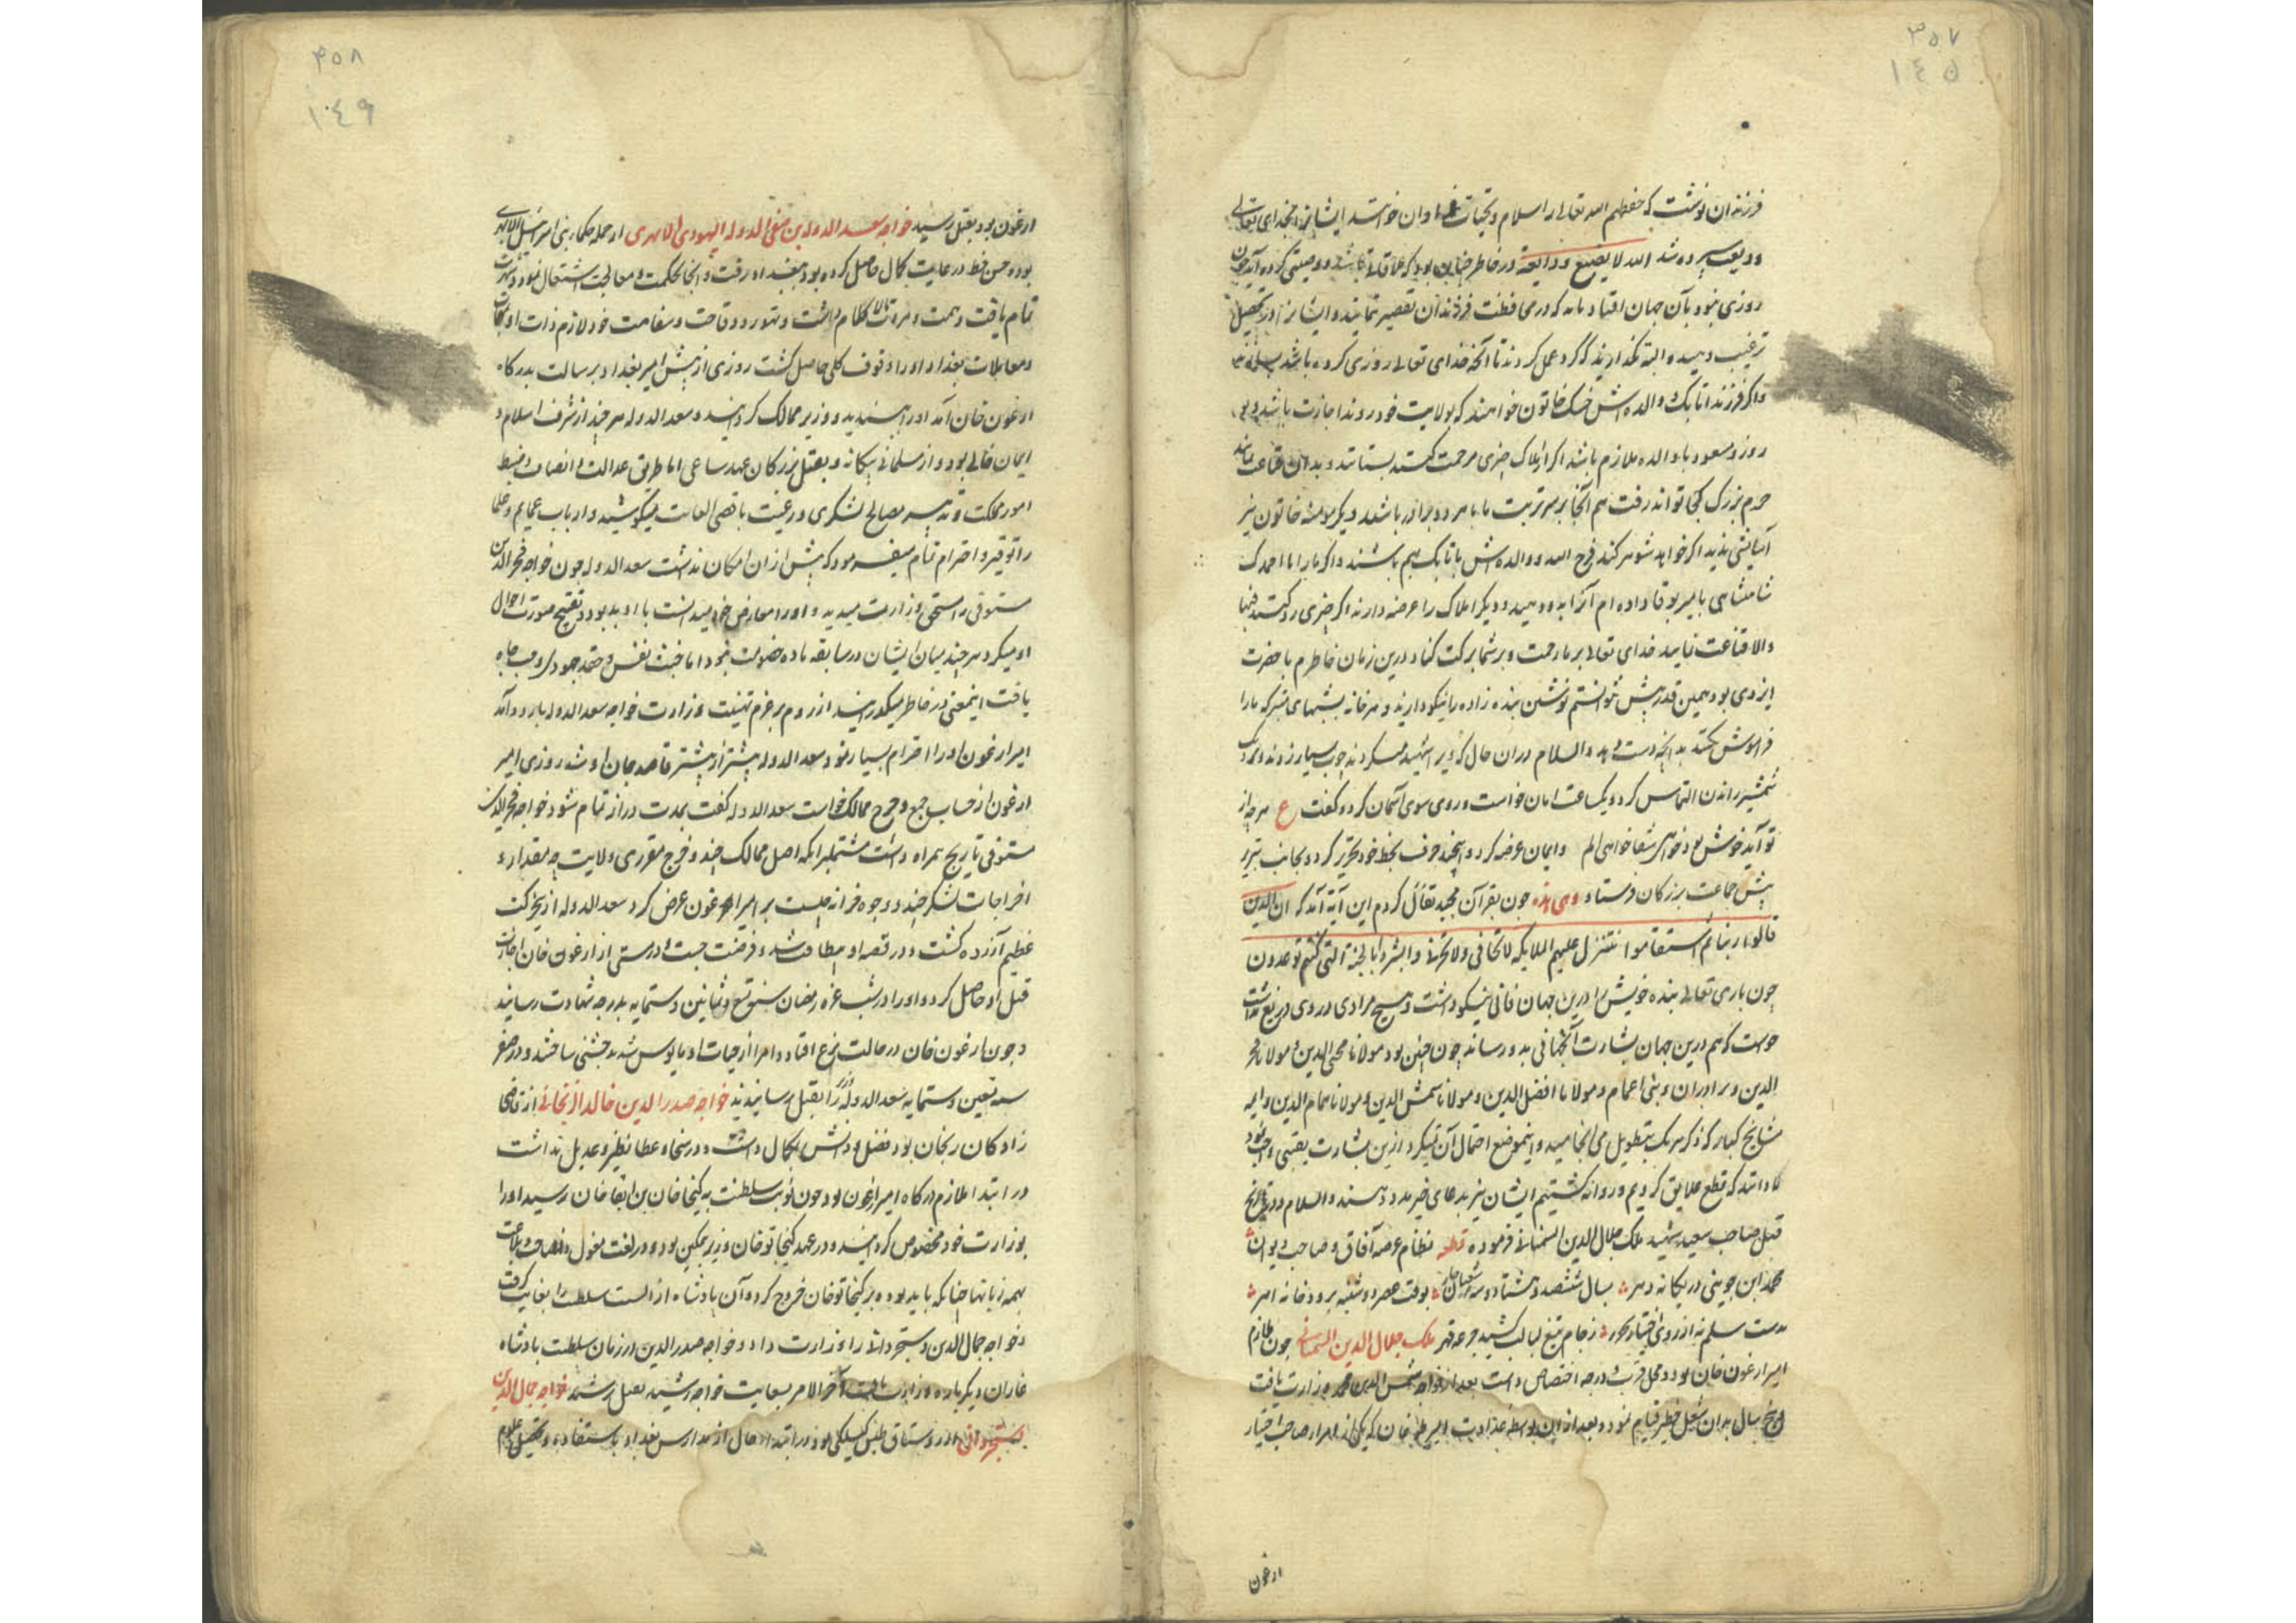 ۳۵۷
۱٤۵
فرزندان نوشت که حفظهم الله تعالی را سلام و تحیات فراوان خوانند ایشانرا بخدای تعالی
ودیعت سپرده شد الله لا یضیع ودایعه در خاطر چنان بود که ملاقات باشد و وصیتی کرده آید چون
روزی نبود بآن جهان افتاد باید که در محافظت فرزندان تقصیر ننمایند و ایشانرا در تحصیل
ترغیب دهند و البته نگذارند که گرد عمل کردند تا آنچه خدای تعالی روزی کرده باشد
و اگر فرزند اتابک و والده اش خشک خاتون خواهند که بولایت خود روند اجازت باشد
روز و مسعود با والده ملازم باشند اگر از املاک چیزی مرحمت کنند بستانند و بدان قناعت نمایند
حرم بزرگ کجا تواند رفت هم آنجا بر سر تربت ما با هر دو برادر باشد دیگر مومنه خاتون نیز
آسایشی ندید اگر خواهد شوهر کند فرج الله و والده اش با اتابک بهم باشند و اگر
شاهنشاهی با میر بوقا داده ام آنرا بدو دهید و دیگر املاک را عرضه دارند اگر چیزی رد کنند فبها
والا قناعت نمایند خدای تعالی بر ما رحمت و بر شما برکت کناد درین زمان خاطرم با حضرت
ایزدی بود همین قدر بیش نتوانستم نوشتن بنده زاده را نیکو دارند و هر خانه بشبهای متبرکه ما را
فراموش نکنند بدانچه دست دهد والسلام در آن حال که ویرا شهید میکردند چوب بسیار زدند
شمشیر راندن التماس کرد و یکساعت امان خواست و روی سوی آسمان کرد و گفت ع هرچه از
تو آید خوش بود خواهی شفا خواهی الم وایمان عرضه کرد و این چند حرف بخط خود تحریر کرد و بجانب تبریز
پیش جماعت بزرگان فرستاد وهی هذه چون بقرآن مجید تفأل کردم این آیه آمد که ان الذین
قالوا ربنا الله ثم استقاموا تتنزل علیهم الملایکه لا تخافی ولا تحزنی وابشروا بالجنة التی کنتم توعدون
چون باری تعالی بنده خویش را درین جهان فانی نیکو داشت و هیچ مرادی از وی دریغ نداشت
خواست که هم درین جهان بشارت آنجهانی بدو رساند چون چنین بود مولانا محیی الدین و مولانا فخر
الدین و برادران و بنی اعمام و مولانا افضل الدین و مولانا شمس الدین و مولانا همام الدین وایمه
مشایخ کبار که ذکر هر یک بتطویل می انجامید و این موضع احتمال آن نمیکرد ازین بشارت یقینی واجب نمود
تا دانند که قطع علایق کردیم و روانه گشتیم ایشان نیز بدعای خیر مدد دهند والسلام و در تاریخ
قتل صاحب سعید شهید ملک جلال الدین السمنانی فرموده قطعه نظام عرصه آفاق و صاحب دیوان
محمد ابن جوینی در یگانه دهر بسال ششصد و هشتاد و سه ز شعبان چار بوقت عصر دوشنبه برودخانه اهر
بدست سلم نه از روی اختیار بخورد ز جام تیغ لبالب کشید جرعه قهر ملک جلال الدین السمنانی چون ملازم
امیر ارغون خان بود و محل قربت و درجه اختصاص داشت بعد از خواجه شمس الدین محمد وزارت یافت
و پنج سال بدان شغل خطیر قیام نمود و بعد از آن بواسطه عداوت امیر طغا خان که یکی از امراء صاحب اختیار
ارغون
۳۵۸
۱٤۹
ارغون بود بقتل رسید خواجه سعد الدوله بن صفی الدوله الیهودی الابهری از جمله حکماء بنی اسرائیل الابهری
بوده حسن خط در غایت کمال حاصل کرده بود ببغداد رفت و آنجا بحکمت و معالجت اشتغال نمود و شهرت
تمام یافت و همت و مروت لا کلام داشت و تهور و وقاحت و سفاهت خود لازم ذات او
و معاملات بغداد او را وقوف کلی حاصل گشت روزی از پیش امیر بغداد برسالت بدرگاه
ارغون خان آمد او را پسندید و وزیر ممالک گردانید و سعد الدوله هر چند از شرف اسلام و
ایمان خالی بود و از مسلمانی بیگانه و بقتل بزرگان عهد ساعی اما طریق عدالت و انصاف و ضبط
امور مملکت و تدبیر مصالح لشکری و رعیت باقصی الغایت میکوشید و ارباب عمایم و علما
را توقیر و احترام تمام میفرمود که بیش از آن امکان نداشت سعد الدوله چون خواجه فخر الدین
مستوفی را مستحق وزارت میدید و او را معارض خود میدانست با او بد بود و تقبیح صورت احوال
او میکرد هر چند میان ایشان در سابقه ماده خصومت نبود اما خبث نفس و حقد جهودی و حب جاه
یافت اینمعنی در خاطر میگذرانید از روم بر عزم تهنیت وزارت خواجه سعد الدوله باردو آمد
امیر ارغون او را احترام بسیار نمود سعد الدوله بیشتر از بیشتر قاصد جان او شد روزی امیر
ارغون از حساب جمع و خرج ممالک خواست سعد الدوله گفت بمدت دراز تمام شود خواجه فخر الدین
مستوفی تاریخ همراه داشت مشتمل برآنکه اصل ممالک چند و خرج مقرری ولایت چه مقدار و
اخراجات لشکر چند و وجوه خزانه چیست بر امیر ارغون عرض کرد سعد الدوله ازین حرکت
عظیم آزرده گشت و در قصد او مبالغت شد و فرصت جست و در مستی از ارغون خان اجازت
قتل او حاصل کرد و او را در شب غره رمضان سنه تسع و ثمانین و ستمایه بدرجه شهادت رسانید
و چون ارغون خان در حالت نزع افتاد و امرا از حیات او مایوس شدند جشنی ساختند و در صفر
سنه تسعین و ستمایه سعد الدوله را بقتل رسانیدند خواجه صدر الدین خالد الزنجانی از قاضی
زادگان زنجان بود فضل و دانش بکمال داشت و در سخا و عطا نظیر و عدیل نداشت
در ابتدا ملازم درگاه امیر ارغون بود چون نوبت سلطنت به کیخاتو خان بن ابقا خان رسید او را
بوزارت خود مخصوص گردانید و در عهد کیخاتو خان وزیر بتمکین بود و در لغت مغول و فصاحت و بلاغت
بهمه زبانها چنانکه باید بوده بر کیخاتو خان خروج کرد و آن پادشاه از الست سلطنت را بغارت گرفت
و خواجه جمال الدین دستجردانی را وزارت داد و خواجه صدر الدین در زمان سلطنت پادشاه
غازان دیگر باره وزارت یافت و آخر الامر بسعایت خواجه رشید بقتل رسید خواجه جمال الدین
دستجردانی از روستاق طبس گیلکی بود در ابتداء حال از مدارس بغداد باستفاده و تحصیل علوم